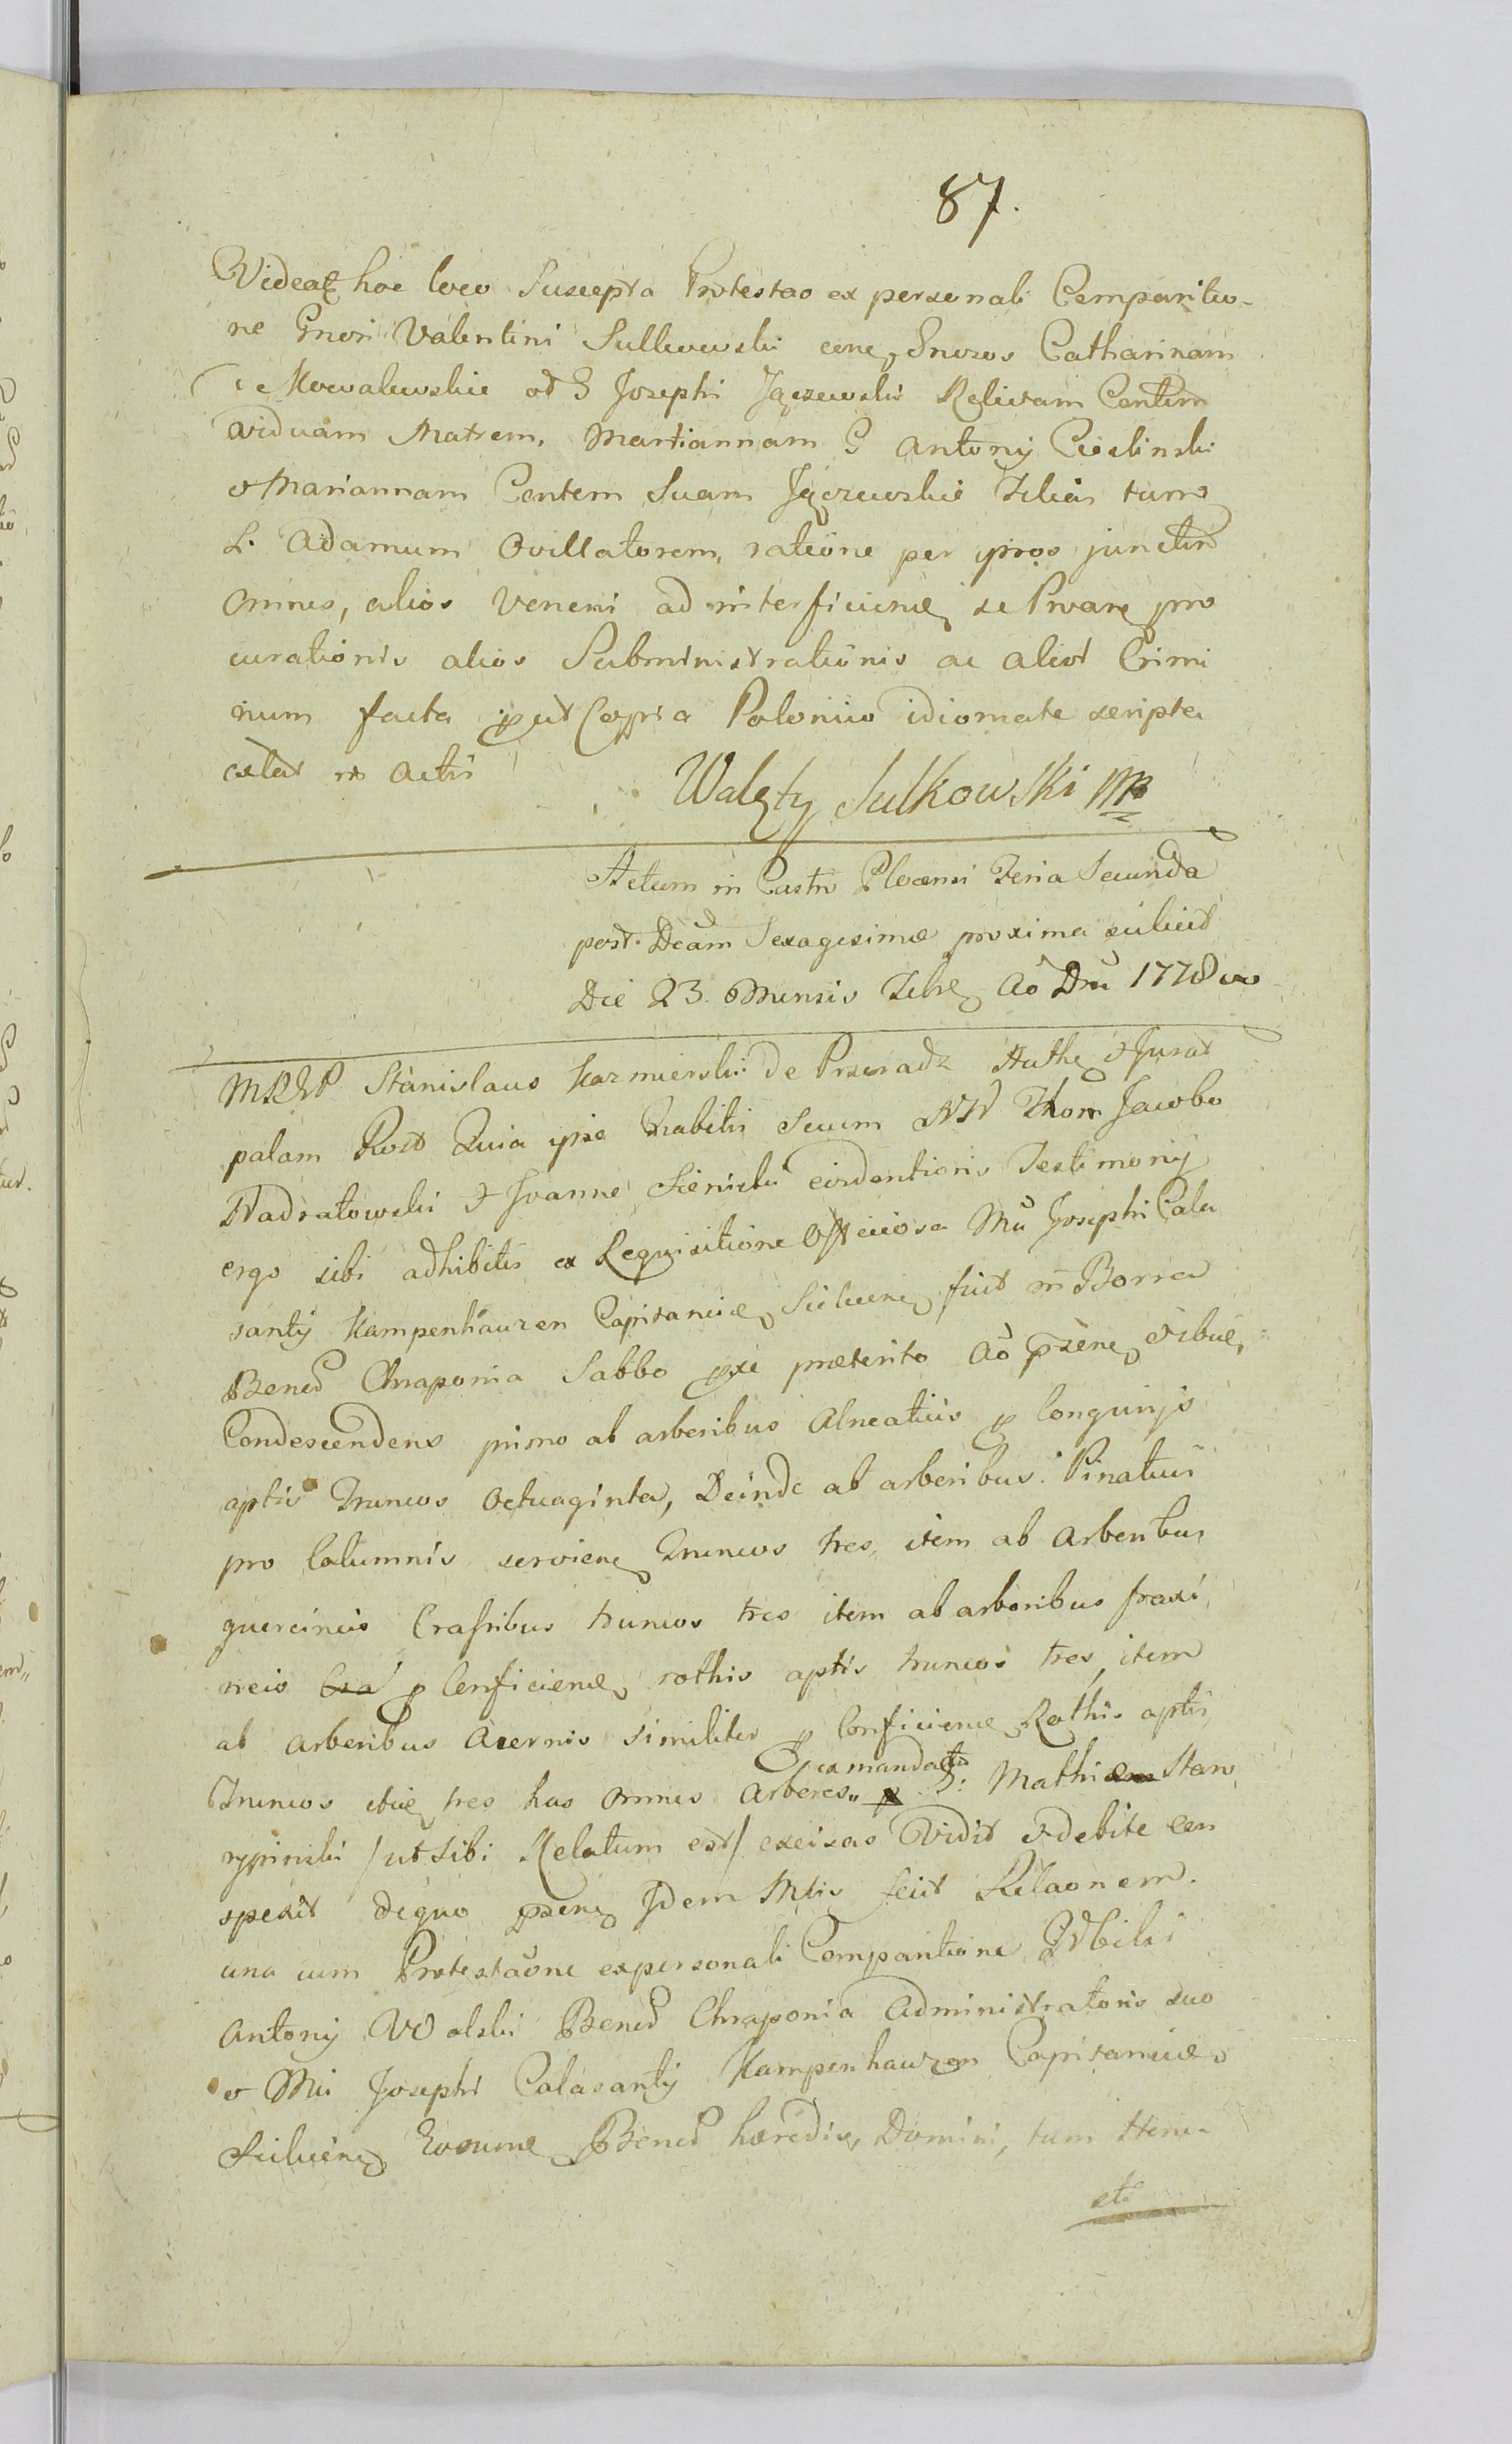 87.
Videat hoc loco Suscepta Protestao ex personali Comparitio-
ne Gnosi Valentini Sulkowski conę Gnosos Catharinam
de Mowalewskie od G Josephi Jączewski Relictam Contem
viduam Matrem, Martiannam G Antonij Cieslinski
et Mariannam Contem Suam Jączewskie Filias tum
L. Adamum Ovillatorem, ratione per ipsos junctim
omnes, alios Veneni ad interficiend se Privare pro
curationis alios Subministrationis ac aliot Crimi
num facta put Coppia Polonico idiomate scripta
extat in Actis
Walęty Sulkowski mp
Actum in Castro Plocensi Feria Secunda
post. Dcam Sexagesimæ proxima scilicet
Die 23. Mensis Febr Ao Dni 1778vo
Stanislaus Kazmierski de Przeradz Auth et Jurat
palam Rost Quia ipse habitis Secum NN Thom Jacobo
Nadratowski et Joanne Sieniski evidentioris Testimonij
ergo sibi adhibitis ex Requisitione Officiosa Mci Josephi Cala
santij Kampenhauzen Capitanei fuit in Borra
Bonor Chraponia Sabbo pxe præterito Ao præsen
Condescendens primo ab arboribus Alneaticis p longurijs
aptis Truncos Octuaginta, Deinde ab arboribus Pinaticis
pro Columnis servien Truncos tres, item ab Arboribus
quercineis Crassribus truncos tres item ab arboribus fraxi
neis p Conficiend rothis aptis truncos tres, item
ab arboribus Acernis Similiter p Conficiend Rothis aptis
ex mandato
Truncos itid tres has omnes Arbores G: Mathiæ Staro
rypinski /ut sibi Relatum est/ excisas Vidit et debite con
spexit dequo præsen Idem Mtlis fecit Relaonem.
una cum Protestaone expersonali Comparitione Nobilis
Antonij Wolski Bonor Chraponia Administratoris suo
et Mci Josephi Calasantij Kampenhauzen Capitanei
Bonor hæredis, Domini, tum Hono